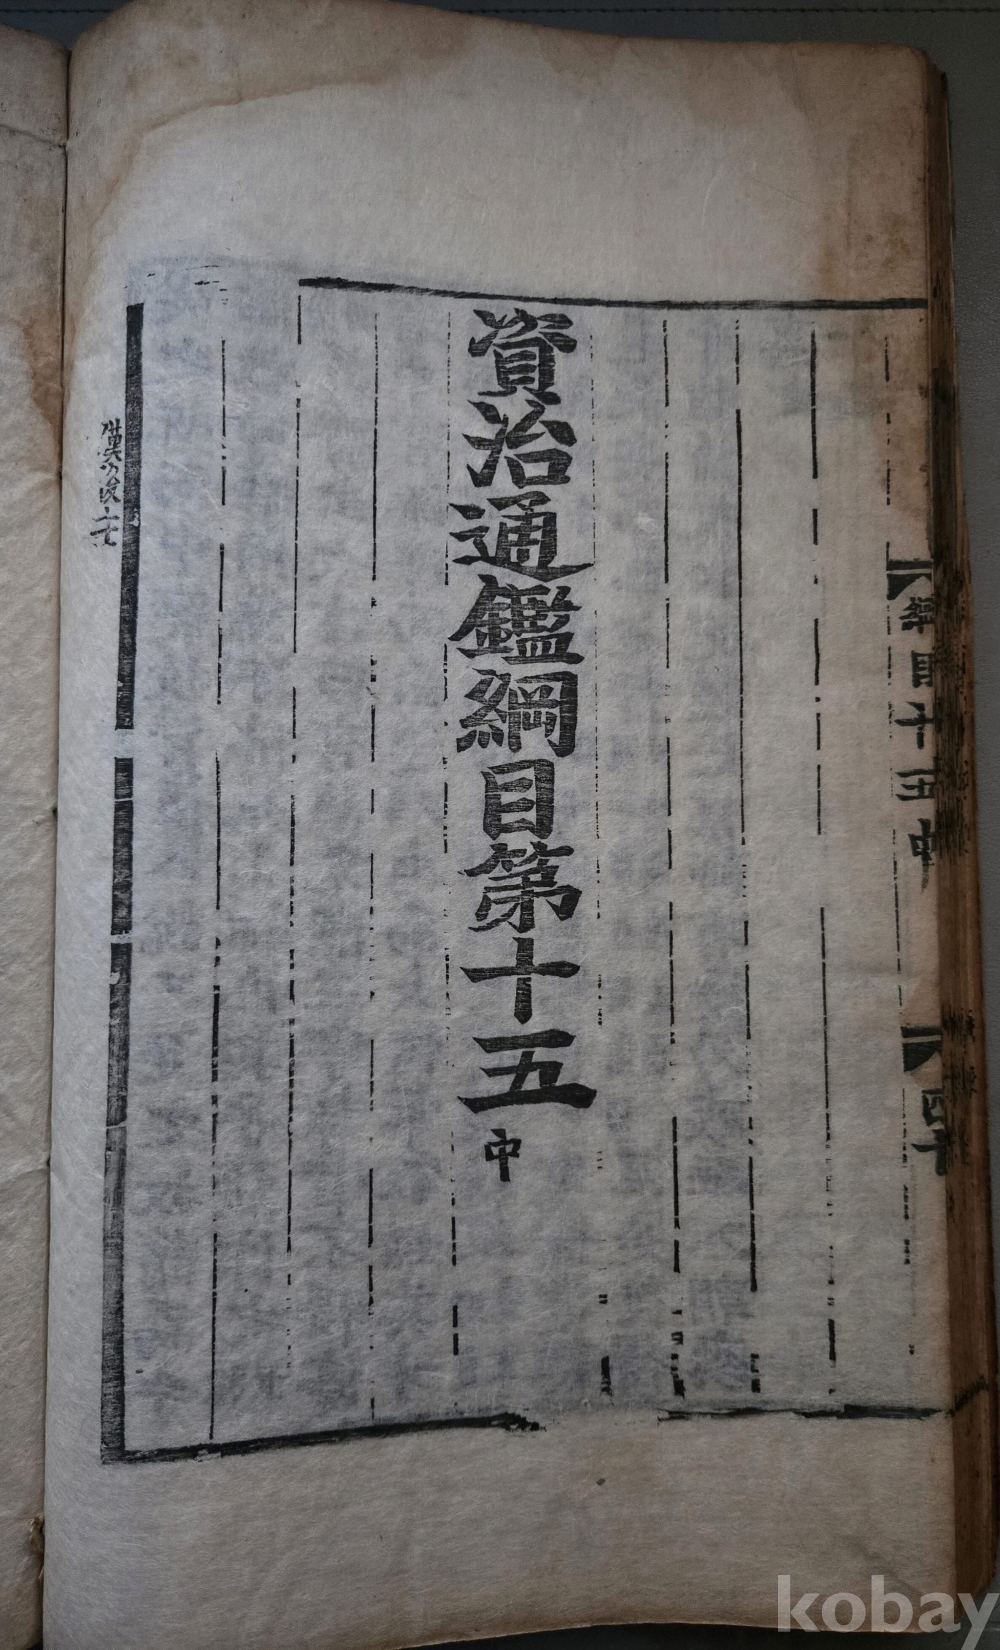 綱目十五中
四十
資治通鑑綱目第十五中
kobay